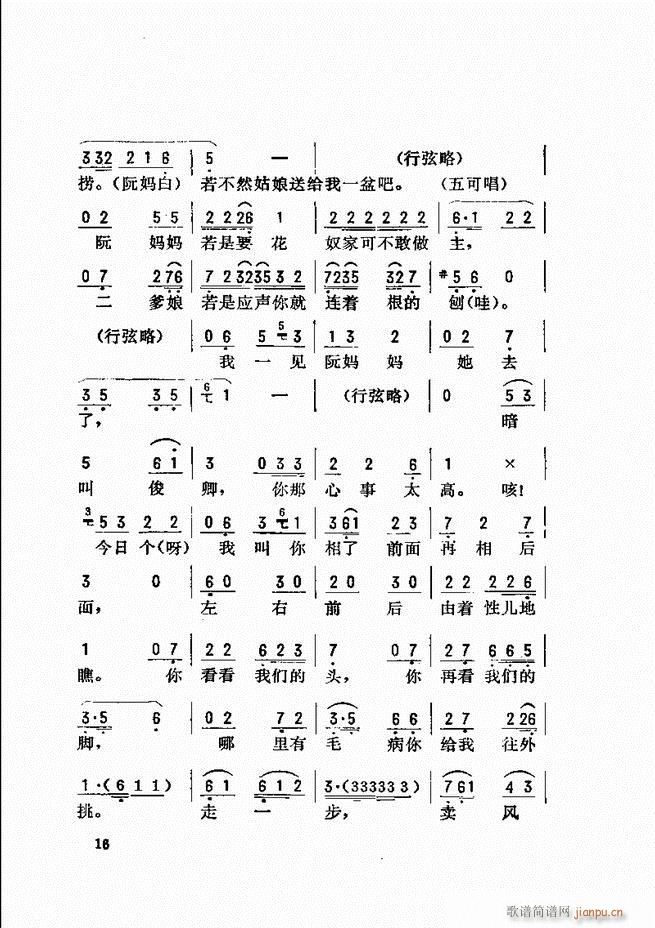 332 216 | 5 — | (行弦略) |
捞。(阮妈白) 若不然姑娘送给我一盆吧。 (五可唱)
02 55 | 2226 1 | 222222 | 6·1 22 |
阮 妈妈 若是要 花 奴家可不敢做 主,
07 276 | 72323532 | 7235 327 | #56 0 |
二 爹娘 若是应声你就 连着 根的 刨(哇)。
(行弦略) | 06 5 3 | 13 2 | 02 7 |
我 一 见 阮妈 妈 她 去
35 35 | 1 — | (行弦略) | 0 53 |
了, 暗
5 61 | 3 033 | 2 2 6 | 1 × |
叫 俊 卿, 你那 心 事 太 高。 咳!
53 22 | 06 3 1 | 361 23 | 7 2 7 |
今日 个(呀) 我 叫 你 相了 前面 再 相 后
3 0 | 60 30 | 20 30 | 22 226 |
面, 左 右 前 后 由着 性儿地
1 07 | 22 623 | 7 07 | 27 665 |
瞧。 你 看看 我们的 头, 你 再看 我们的
3·5 6 | 02 72 | 3·5 66 | 27 226 |
脚, 哪 里有 毛 病你 给我 往外
1·(611) | 61 612 | 3·(333333) | 761 43 |
挑。 走 一 步, 卖 风
16
歌谱简谱网 jianpu.cn